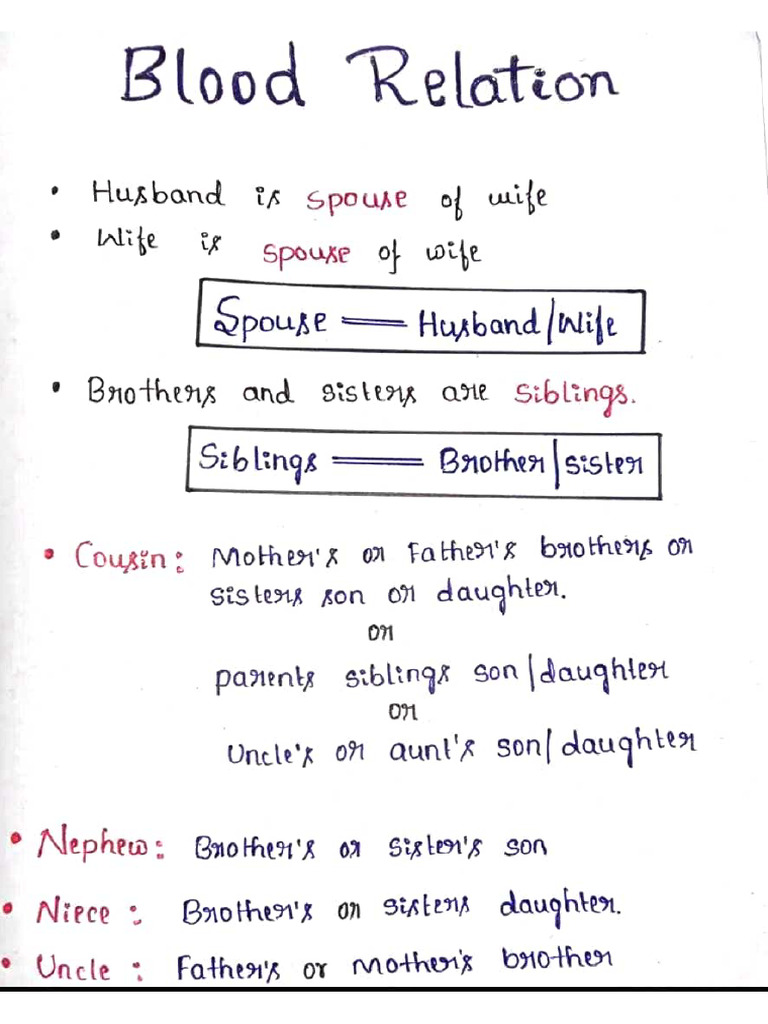 Blood Relation
• Husband is spouse of wife
• Wife is spouse of wife
Spouse = Husband/Wife
• Brothers and sisters are siblings.
Siblings = Brother/sister
• Cousin: Mother's or Father's brothers or
sisters son or daughter.
or
parents siblings son/daughter
or
Uncle's or aunt's son/daughter
• Nephew: Brother's or sister's son
• Niece: Brother's or sisters daughter.
• Uncle: Father's or Mother's brother